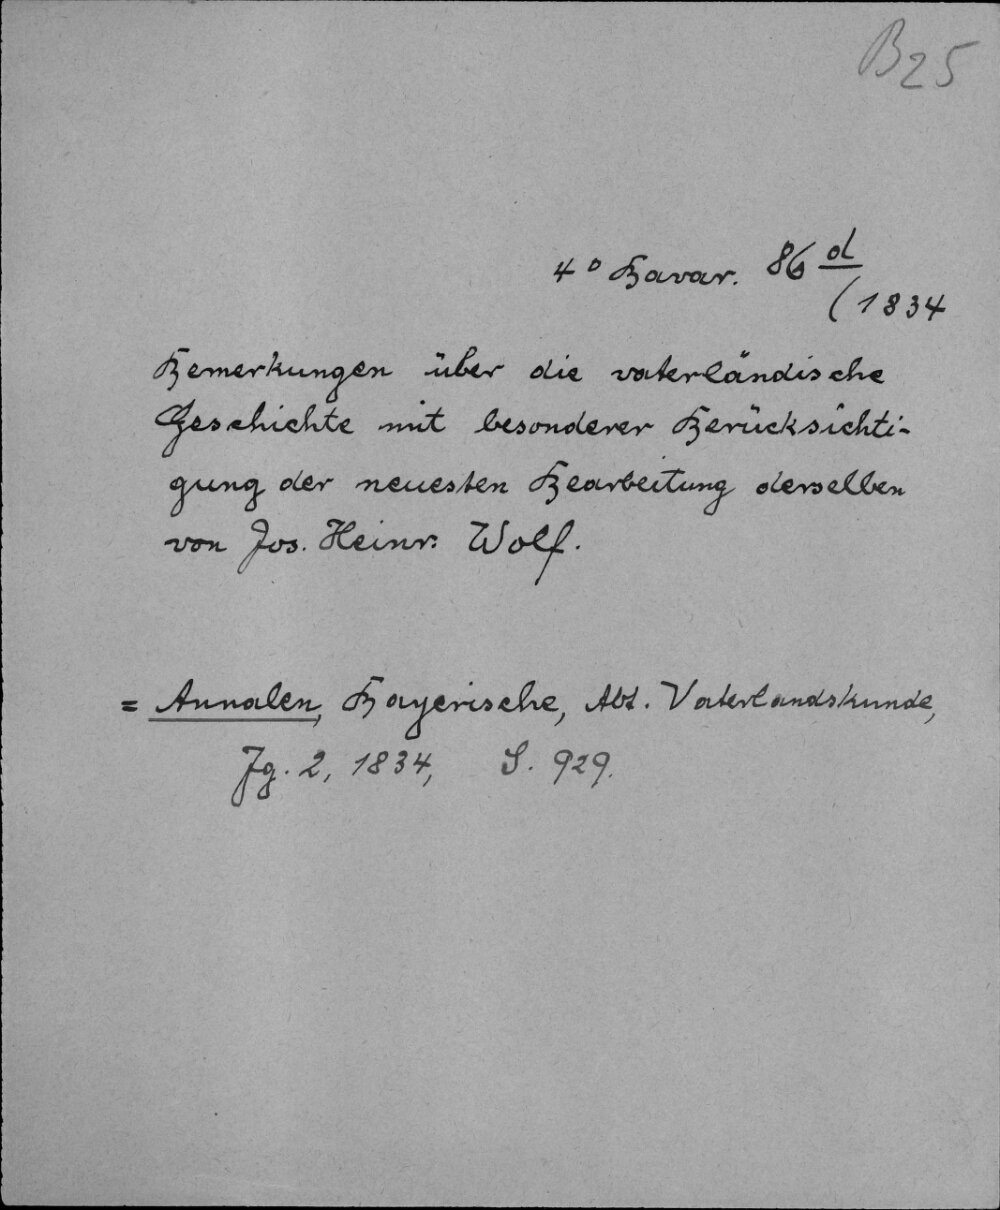 B25
4° Bavar. 86 d
(1834
Bemerkungen über die vaterländische
Geschichte mit besonderer Berücksichti-
gung der neuesten Bearbeitung derselben
von Jos. Heinr. Wolf.
= Annalen, Bayerische, Abt. Vaterlandskunde,
Jg. 2, 1834, S. 929.